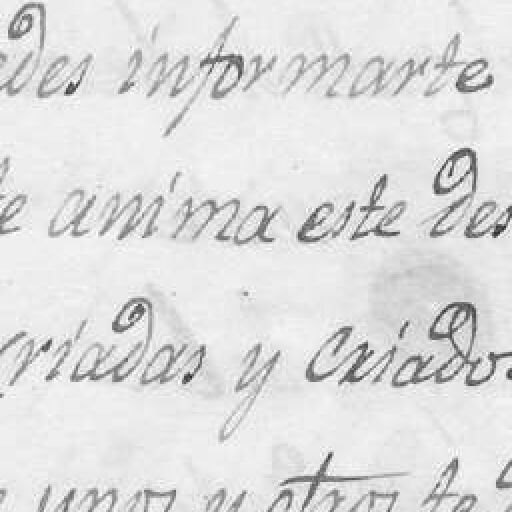 edes informarte
te anima este des
criadas y Criados
unos y otros te